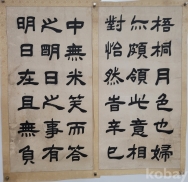 梧桐月色也婦
亦頗領相
對怡然昔
中無米笑而答
之明日之事有
明日在且無負
koba